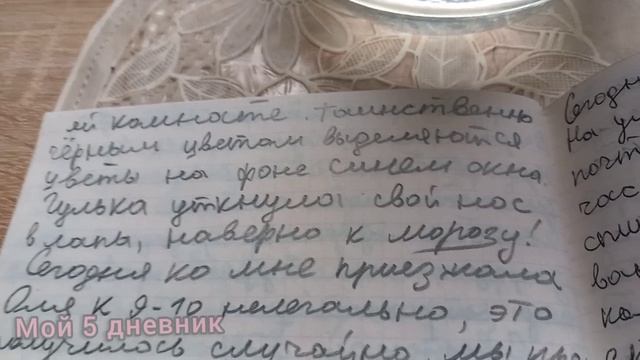 ей комнате. Таинственно
чёрным цветом выделяются
цветы на фоне синем окна.
Гулька уткнула свой нос
в лапы, наверно к морозу!
Сегодня ко мне приезжала
Оля к 9-10 нелегально, это
получилось случайно, мы
Сегодн
На ул
почти
час
Мой 5 дневник